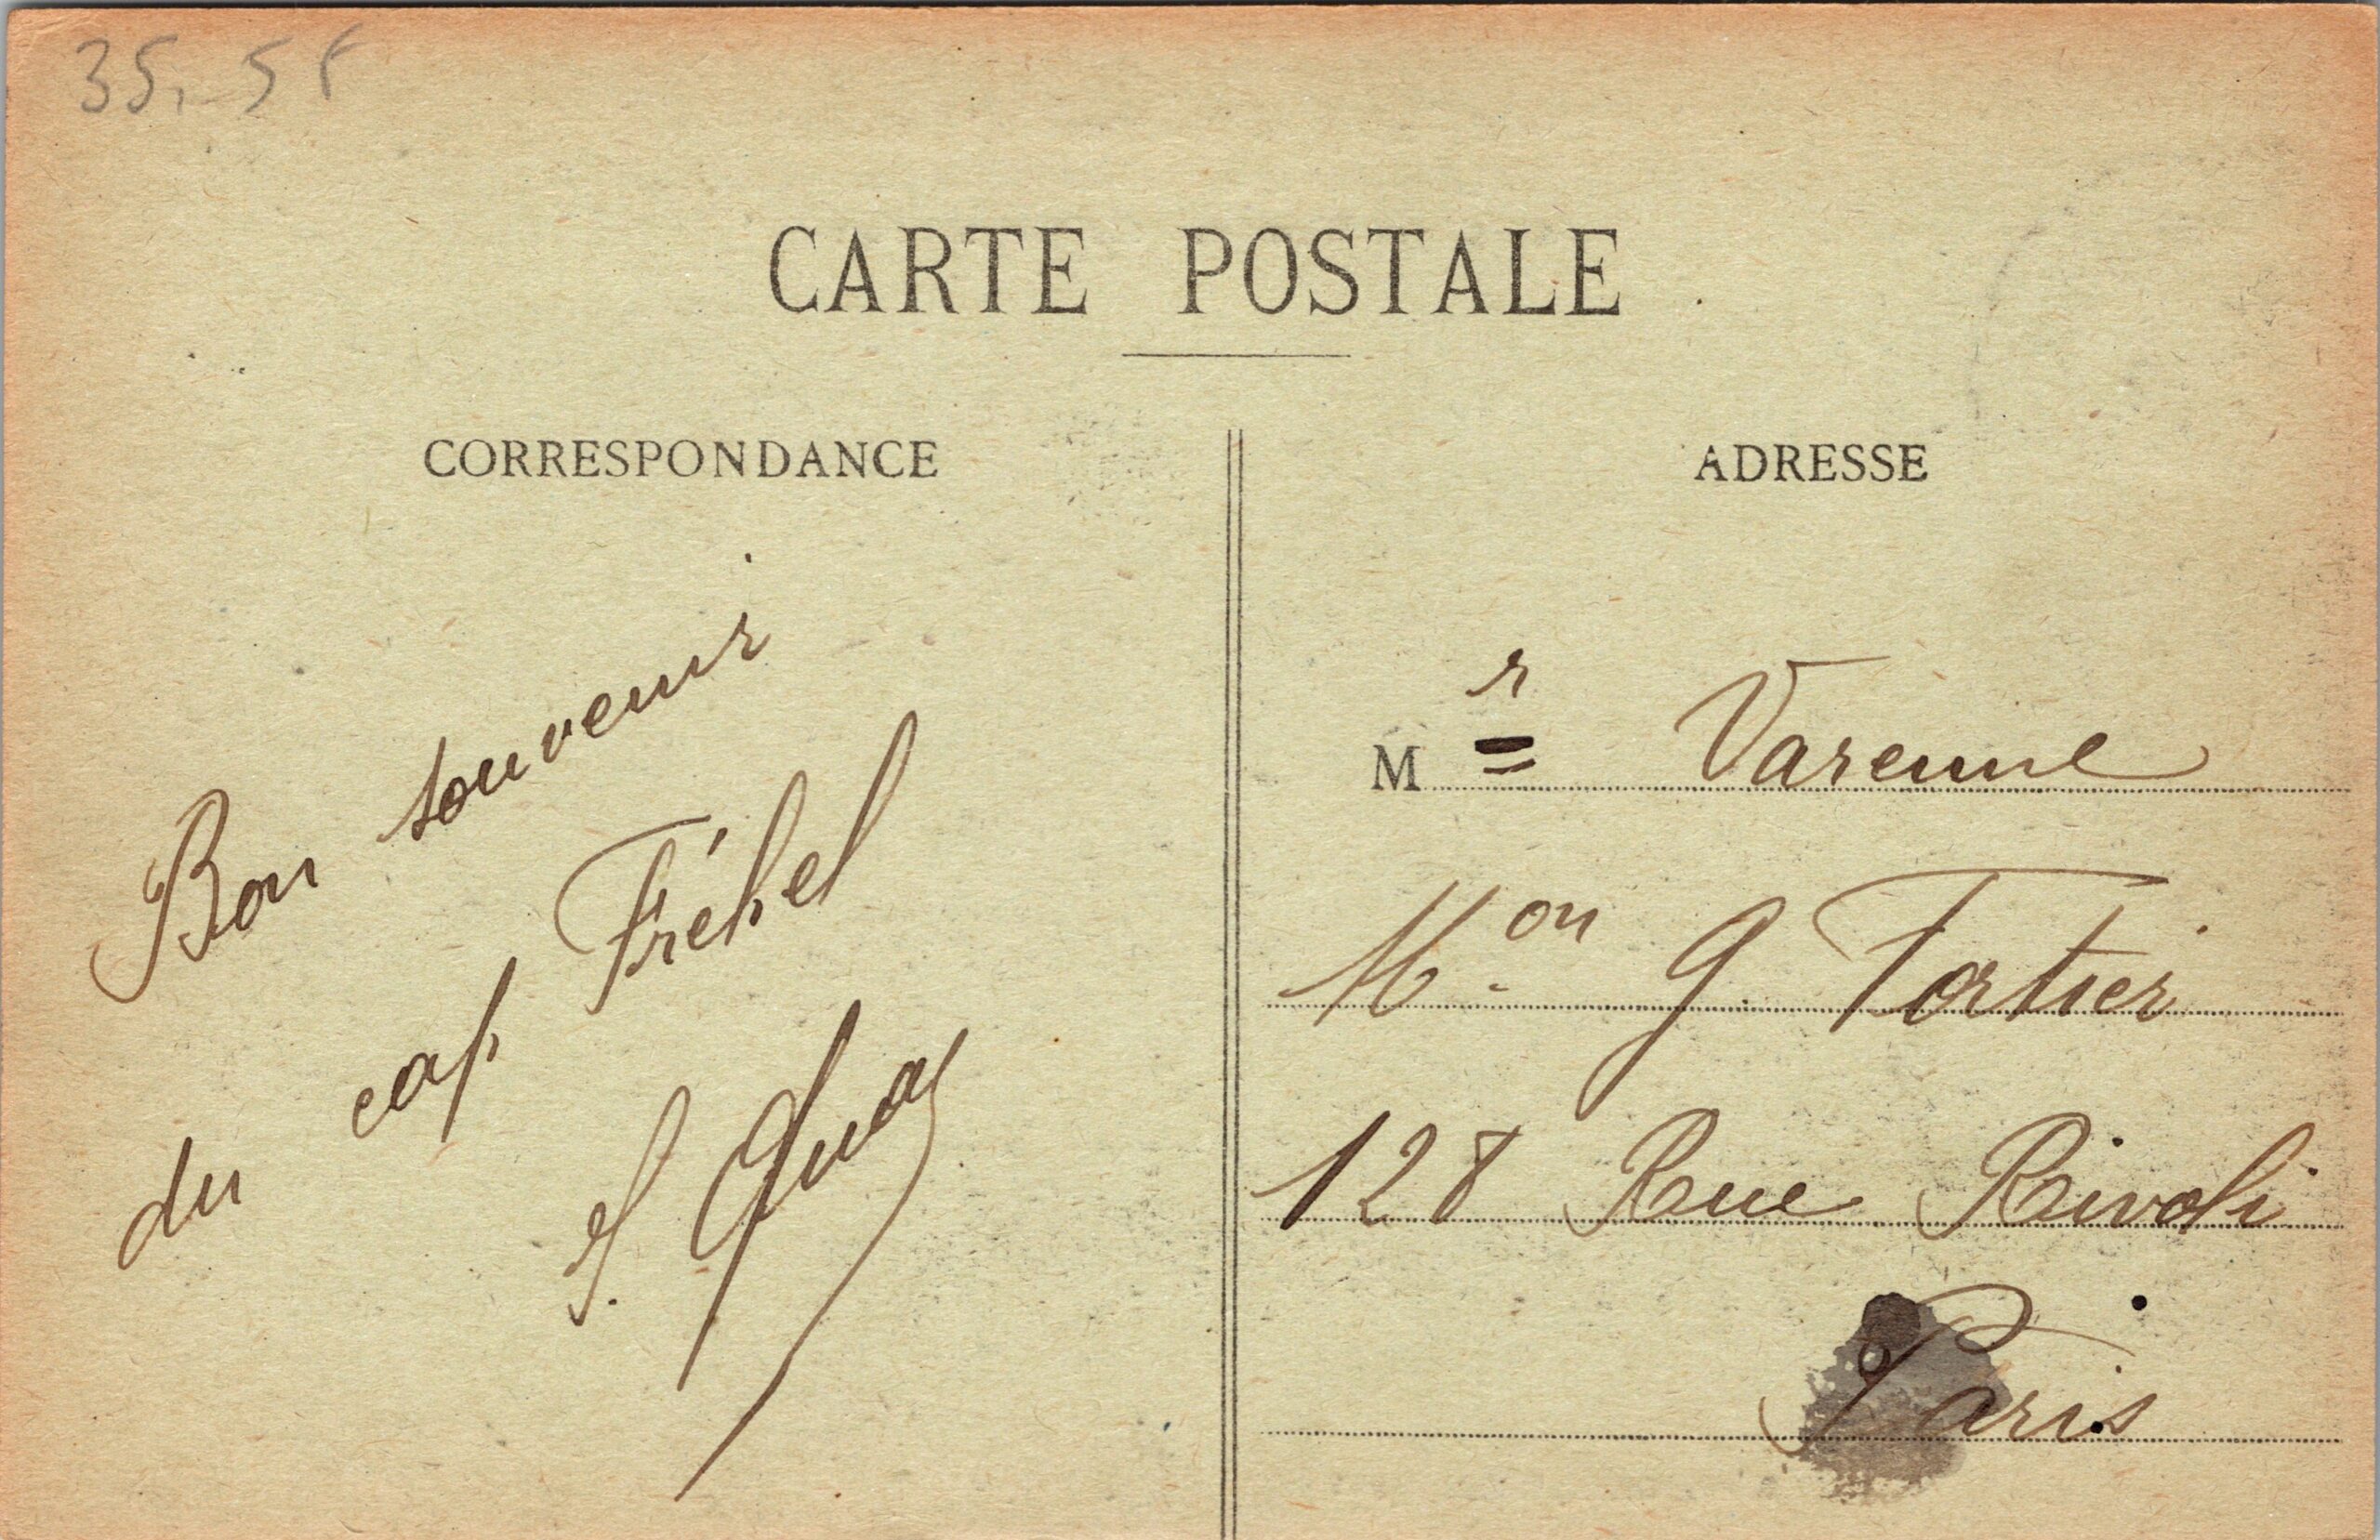 35,5 F
CARTE POSTALE
CORRESPONDANCE
ADRESSE
Bon souvenir
du cap Fréhel
Mr Varenne
Mon G. Tortier
128 Rue Rivoli
Paris